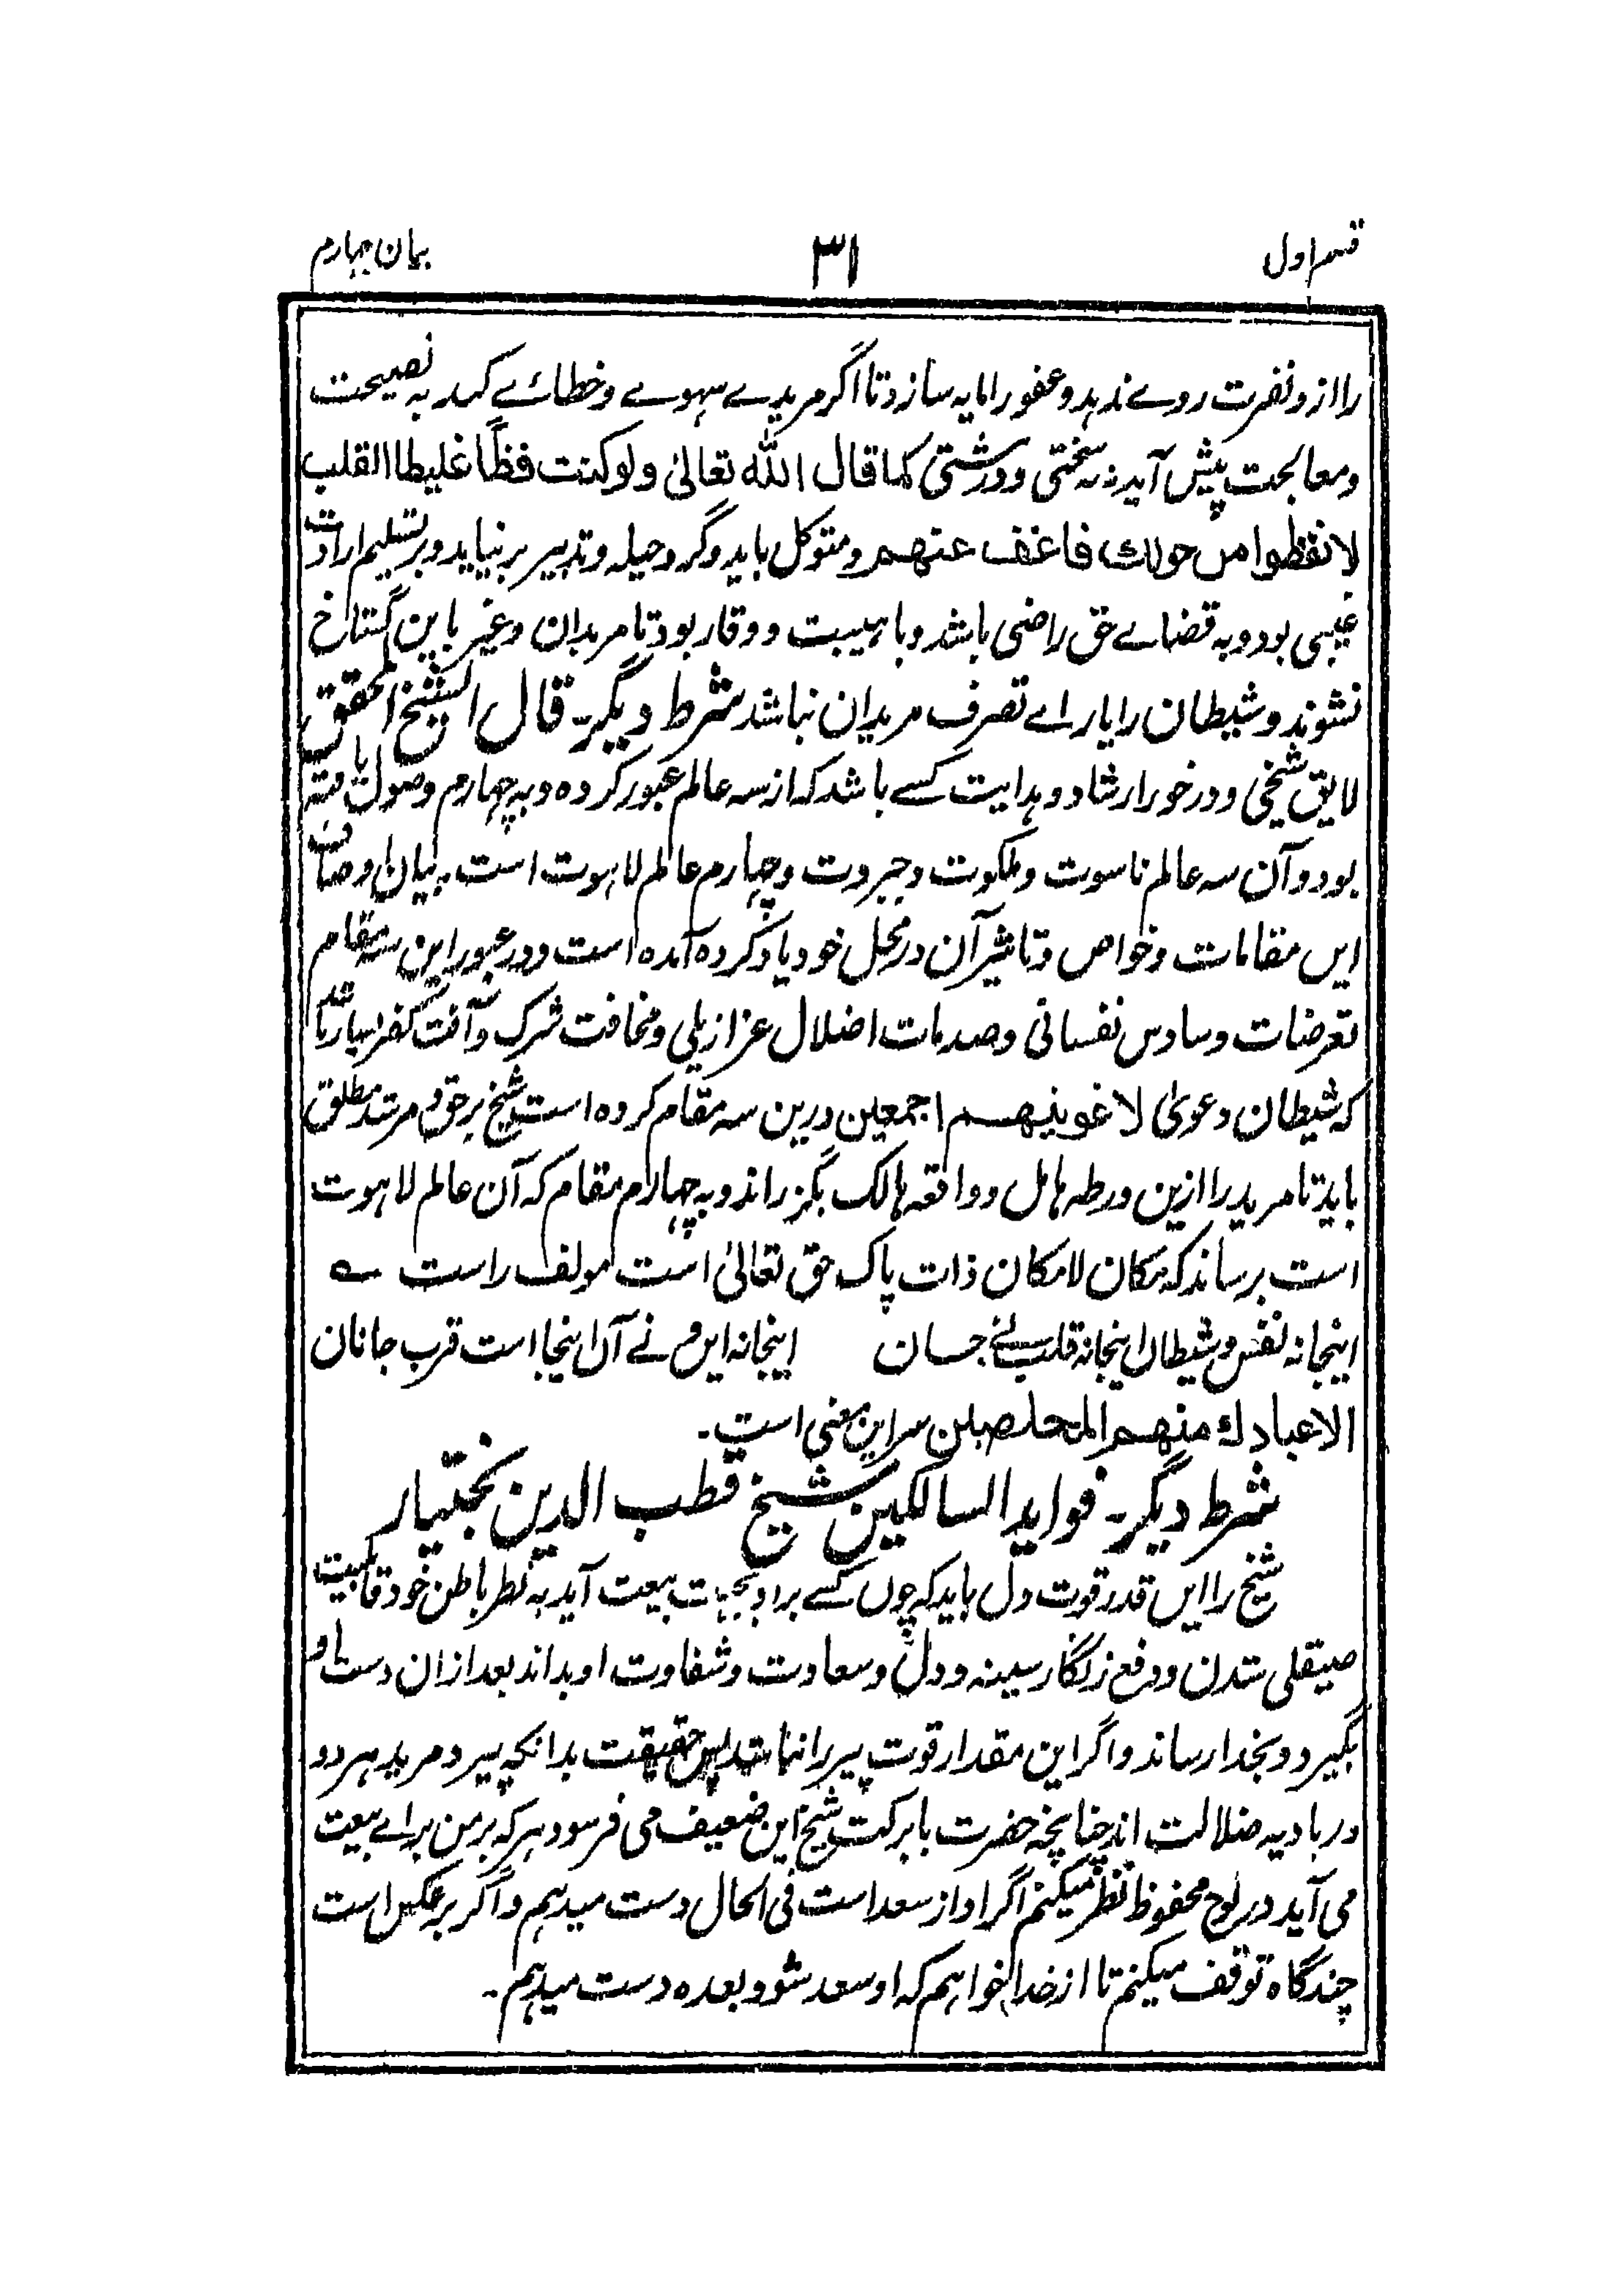 قسم اول
۳۱
بیان چهارم
را از و نفرت روے ندہد و عفو را مایہ سازد تا اگر مریدے سہوے و خطائے کند بہ نصیحت
و معالجت پیش آید نہ سختی و درشتی کما قال اللہ تعالیٰ ولو کنت فظًا غلیظا القلب
لانفظوا من حولك فاعف عنهم و متوکل باید و گرد حیلہ و تدبیر بر نیاید و بر تسلیم ارادت
غیبی بود و بہ قضاے حق راضی باشد و با ہیبت و وقار بود تا مریدان و غیر باین گستاخ
نشوند و شیطان را یاراے تصرف مریدان نباشد شرط دیگر۔ قال الشیخ المحقق
لایق شیخی و درخور ارشاد و ہدایت کسے باشد کہ از سہ عالم عبور کردہ و بہ چہارم وصول یافتہ
بود و آن سہ عالم ناسوت و ملکوت و جبروت و چہارم عالم لاہوت است۔ بیان اوصاف
ایں مقامات و خواص و تاثیر آن در محل خود یاد کردہ آمدہ است و در عبور این سہ مقام
تعرضات وساوس نفسانی و صدمات اضلال عزازیلی و مخافت شرک و آفت کفر بسیار
کہ شیطان دعویٰ لاغوینهم اجمعین درین سہ مقام کردہ است شیخ بر حق و مرشد مطلق
باید تا مرید را ازین ورطہ ہایل و واقعہ ہالک بگزراند و بہ چہارم مقام کہ آن عالم لاہوت
است برساند کہ مکان لامکان ذات پاک حق تعالیٰ است مولف راست ؎
اینجا نہ نفس و شیطان اینجا نہ قلب نے جسان اینجا نہ این و نے آن اینجا است قرب جانان
الاعبادك منهم المخلصین سر این معنی است۔
شرط دیگر۔ فواید السالکین شیخ قطب الدین بختیار
شیخ را ایں قدر قوت دل باید کہ چوں کسے بر او بجہات بیعت آید بہ نظر باطن خود قابلیت
صیقلی شدن و دفع زنگار سینہ و دل و سعادت و شقاوت او بداند بعد ازان دست او
بگیرد و بخدا رساند و اگر این مقدار قوت پیر را نباشد پس حقیقت بدانکہ پیر و مرید ہر دو
در بادیہ ضلالت اند چنانچہ حضرت با برکت شیخ این ضعیف می فرمود ہر کہ بر من براے بیعت
می آید در لوح محفوظ نظر میکنم اگر او از سعد است فی الحال دست میدہم و اگر بر عکس است
چندگاہ توقف میکنم تا از خدا بخواہم کہ او سعد شود بعدہ دست میدہم۔